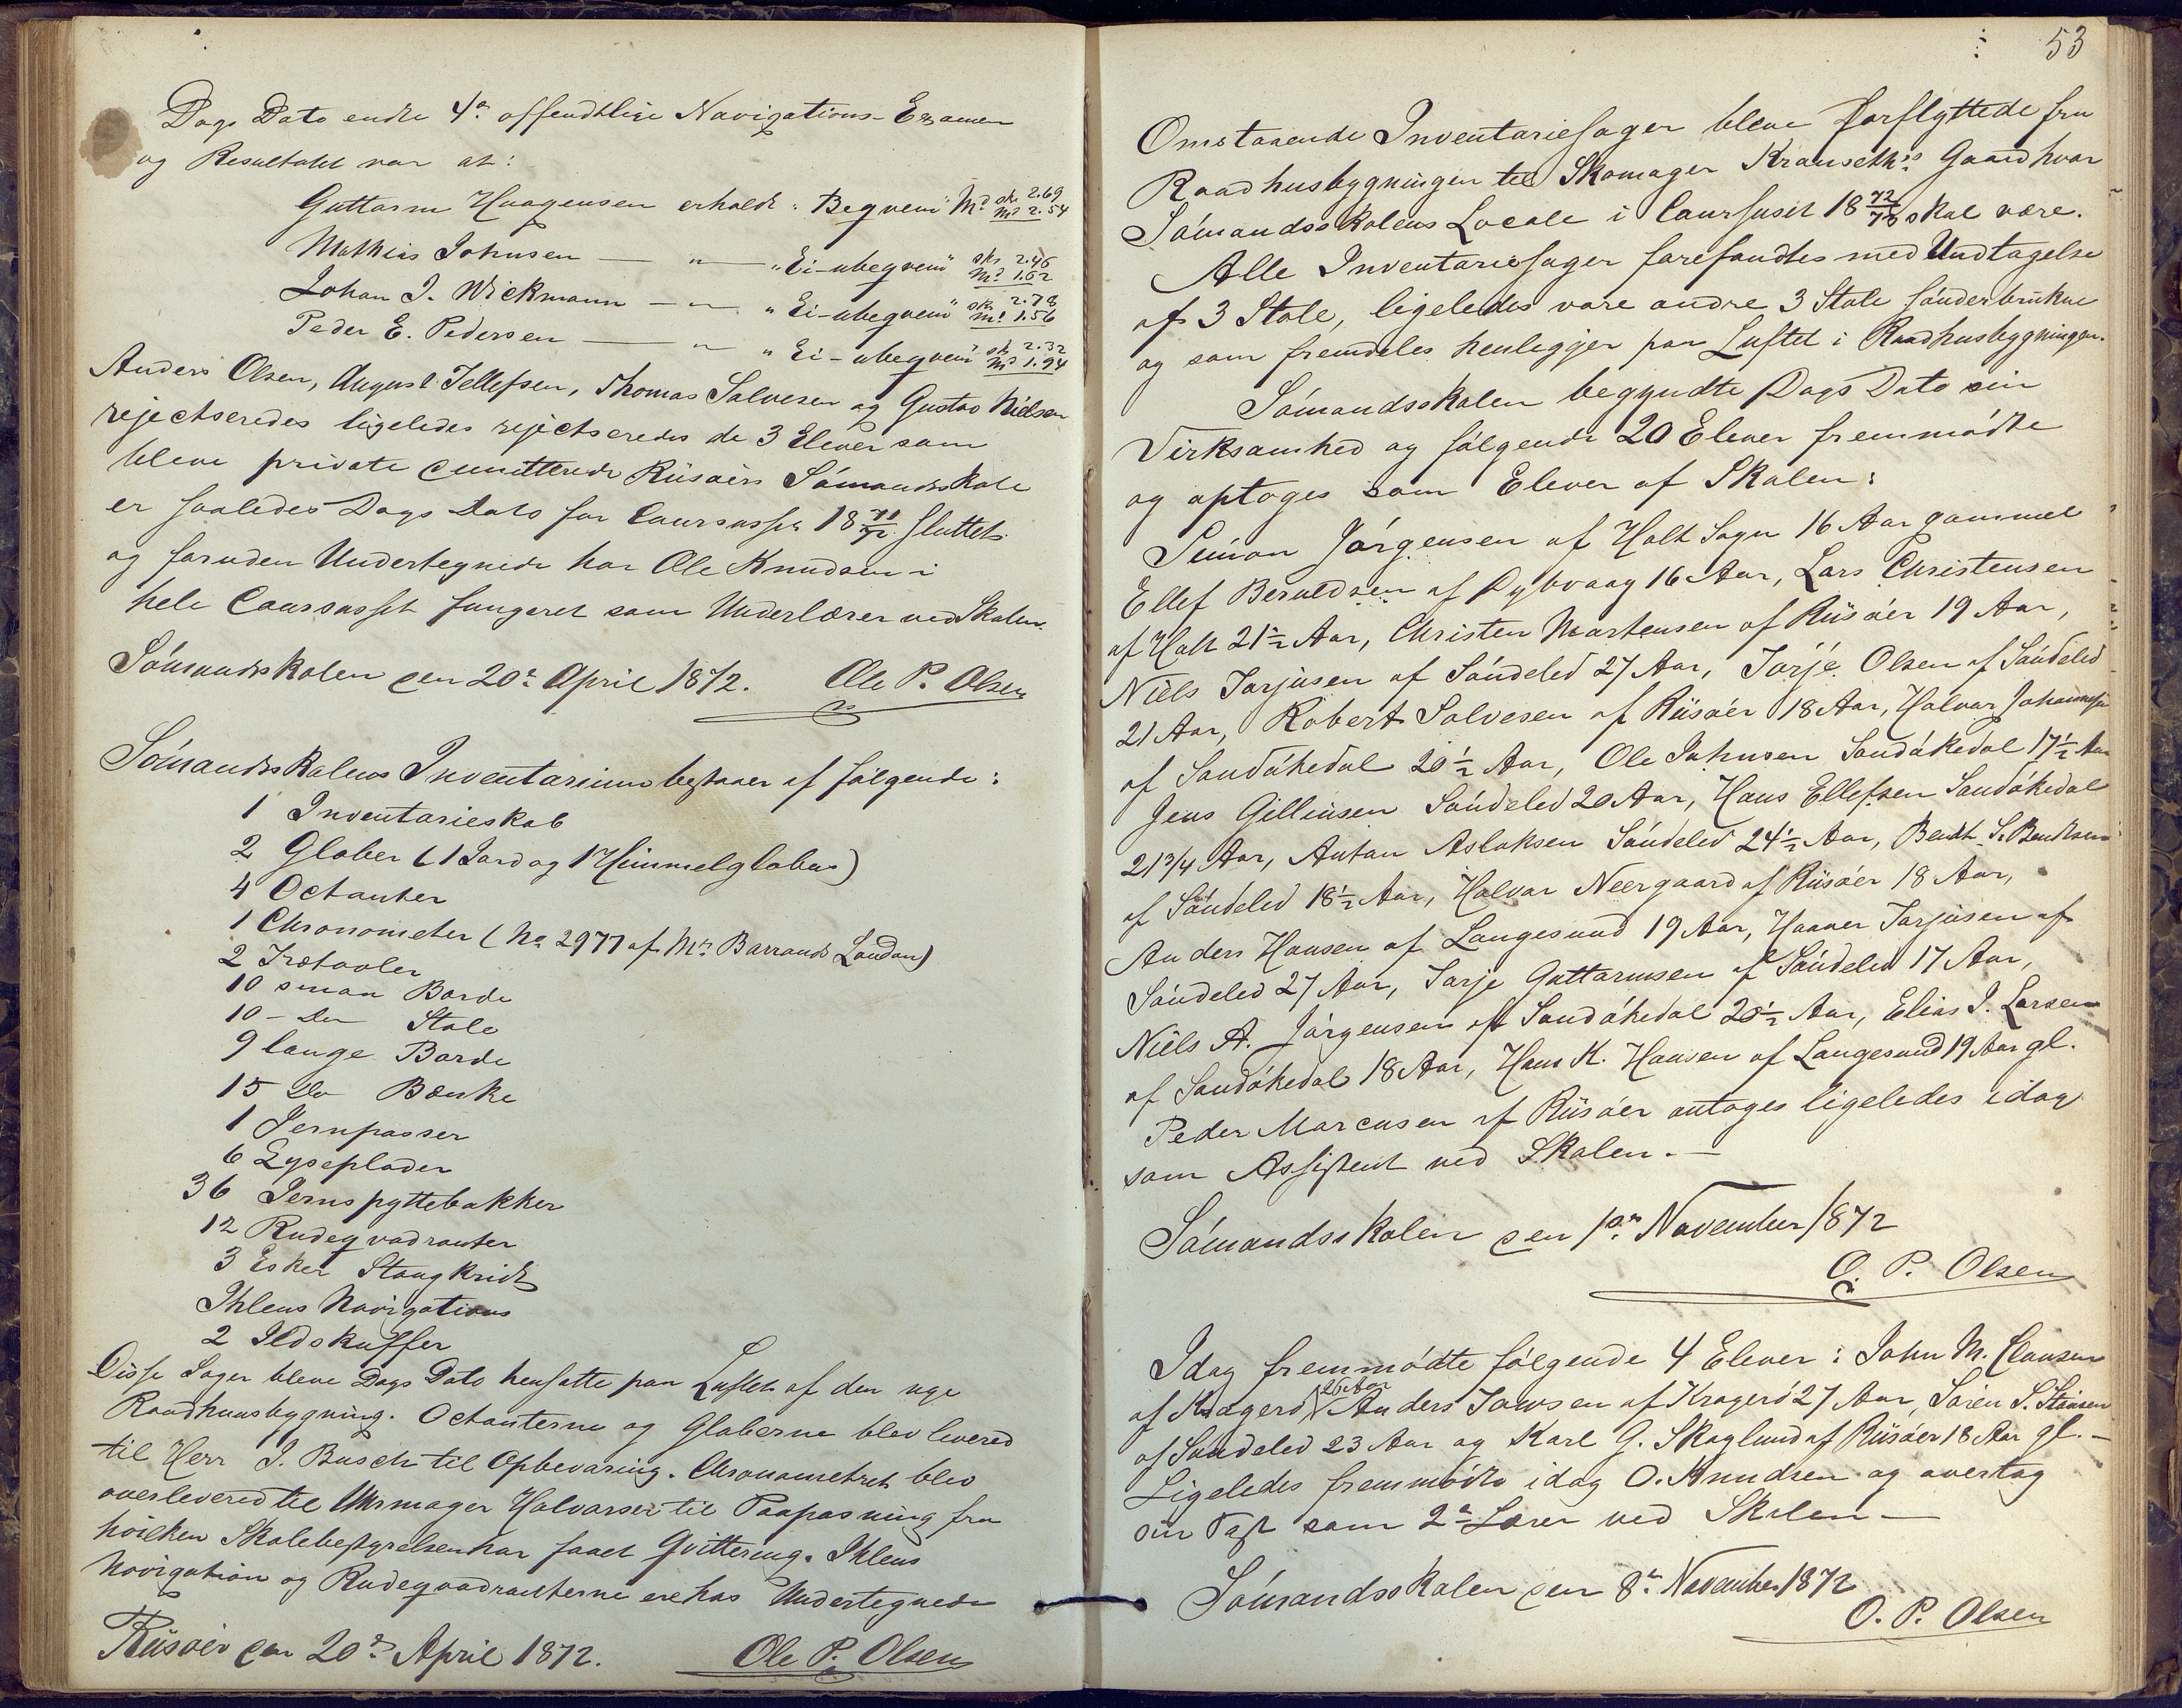 Dags Dato endte 4de offendtlige Navigations-Examen
og Resultatet var at:
Guttorm Haagensen erholdt "Beqvem" Md sk. 2.69 md 2.54
Mathias Johnsen — " — "Ei-ubeqvem" sk. 2.46 md 1.62
Johan J. Wickmann — " — "Ei-ubeqvem" sk. 2.78 md 1.56
Peder E. Pedersen — " — "Ei-ubeqvem" sk 2.32 md 1.94
Anders Olsen, August Tellefsen, Thomas Salvesen og Gustav Nielsen
rejectseredes ligeledes rejectseredes de 3 Elever som
bleve private demitterede Riisøers Sømandsskole
er saaledes Dags Dato for Coursusset 18 71/72 sluttet
og foruden Undertegnede har Ole Knudsen i
hele Coursusset fungeret som Underlærer ved Skolen.
Sømandsskolen den 20de April 1872. Ole P. Olsen
Sømandsskolens Inventarium bestaaer af følgende:
1 Inventarieskab
2 Glober (1 Jord og 1 Himmelglobus)
4 Octanter
1 Chronometer (No 2977 af Mrs Barrauds London)
2 Trætavler
10 smaa Borde
10 — Do Stole
9 lange Borde
15 Do Bænke
1 Jernpasser
6 Lyseplader
36 Jernspyttebakker
12 Rudeqvadranter
3 Esker Stangkridt
Ihlens Navigations
2 Ildskuffer
Disse Sager bleve Dags Dato hensatte paa Luftet af den nye
Raadhuusbygning. Octanterne og Globerne blev levered
til Herr J. Busch til Opbevaring. Chronometret blev
overlevered til Uhrmager Halvorsen til Paapasning fra
hvilken Skolebestyrelsen har faaet Qvittering. Ihlens
Navigation og Rudeqvadranterne ere hos Undertegnede
Riisøer den 20de April 1872. Ole P. Olsen
53
Omstaaende Inventariesager bleve forflyttede fra
Raadhusbygningen til Skomager Grauseths Gaard hvor
Sømandsskolens Locale i Coursuset 18 72/73 skal være.
Alle Inventariesager forefandtes med Undtagelse
af 3 Stole, ligeledes vare andre 3 Stole sønderbrukne
og som fremdeles henligger paa Luftet i Raadhusbygningen.
Sømandsskolen begyndte Dags Dato sin
Virksamhed og følgende 20 Elever fremmødte
og optoges som Elever af Skolen:
Simon Jørgensen af Holt Sogn 16 Aar gammel
Ellef Beruldsen af Dybvaag 16 Aar, Lars Christensen
af Holt 21½ Aar, Christen Mortensen af Riisøer 19 Aar,
Niels Tarjusen af Søndeled 27 Aar, Tarje Olsen af Søndeled
21 Aar, Robert Solvesen af Riisøer 18 Aar, Halvor Johannesen
af Sandøkedal 20½ Aar, Ole Johnsen Sandøkedal 17½ Aar
Jens Gilliusen Søndeled 20 Aar, Hans Ellefsen Sandøkedal
21 3/4 Aar, Anton Aslaksen Søndeled 24½ Aar, Bendt S. Bendtsen
af Søndeled 18½ Aar, Halvor Neergaard af Riisøer 18 Aar,
Anders Hansen af Langesund 19 Aar, Haaver Tarjusen af
Søndeled 27 Aar, Tarje Guttormsen af Søndeled 17 Aar,
Niels A. Jørgensen af Sandøkedal 20½ Aar, Elias J. Larsen
af Sandøkedal 18 Aar, Hans K. Hansen af Langesund 19 Aar gl.
Peder Marcusen af Riisøer antoges ligeledes idag
som Assistent ved Skolen. —
Sømandsskolen den 1ste November 1872
O. P. Olsen
Idag fremmødte følgende 4 Elever: John M. Clausen
af Kragerø 26 Aar Anders Jansen af Kragerø 27 Aar, Søren S.
af Søndeled 23 Aar og Karl G. Skoglund af Riisøer 18 Aar gl. —
Ligeledes fremmødte idag O. Knudsen og overtog
sin Post som 2den Lærer ved Skolen —
Sømandsskolen den 8de November 1872
O. P. Olsen